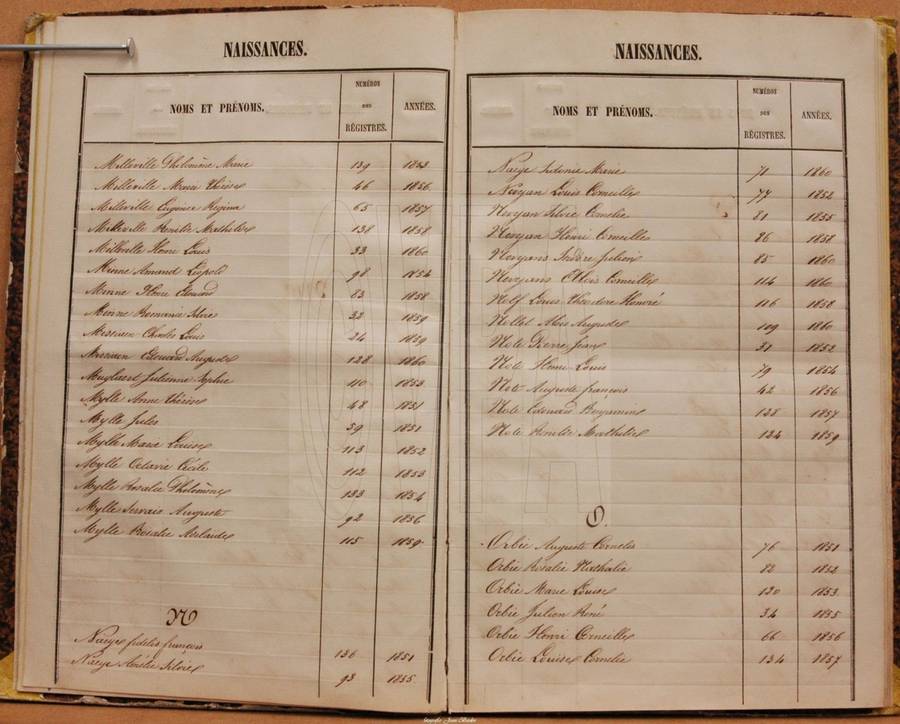 NAISSANCES.
NOMS ET PRÉNOMS. NUMÉROS DES RÉGISTRES. ANNÉES.
Milleville Philomène Marie 139 1853
Milleville Marie Thérèse 46 1856
Milleville Eugénie Regina 65 1857
Milleville Amélie Mathilde 138 1858
Milleville Henri Louis 33 1860
Minne Amand Léopold 98 1854
Minne Henri Edouard 83 1858
Minne Romanie Silvie 33 1859
Missiaen Charles Louis 24 1859
Missiaen Edouard Auguste 128 1860
Muylaert Julienne Sophie 110 1853
Mylle Anne Thérèse 48 1851
Mylle Jules 39 1851
Mylle Marie Louise 113 1852
Mylle Octavie Cécile 112 1853
Mylle Rosalie Philomène 133 1854
Mylle Servais Auguste 92 1856
Mylle Rosalie Adélaïde 115 1859
N
Naeye fidelis françois 136 1851
Naeye Amélie Silvie 93 1855
NAISSANCES.
NOMS ET PRÉNOMS. NUMÉROS DES RÉGISTRES. ANNÉES.
Naeye Sidonie Marie 71 1860
Louis Corneille 77 1852
Silvie Cornélie 81 1855
Henri Corneille 86 1858
Julien 85 1860
Corneille 114 1860
Nolf Louis Théodore Honoré 116 1858
Nollet Aloïs Auguste 109 1860
Note Pierre Jean 31 1852
Note Henri Louis 79 1854
Note Auguste françois 42 1856
Note Edouard Benjamin 128 1857
Note Amélie Mathilde 124 1859
O.
Orbie Auguste Cornelis 76 1851
Orbie Rosalie Nathalie 82 1852
Orbie Marie Louise 130 1853
Orbie Julien René 34 1855
Orbie Henri Corneille 66 1856
Orbie Louise Cornelie 134 1857